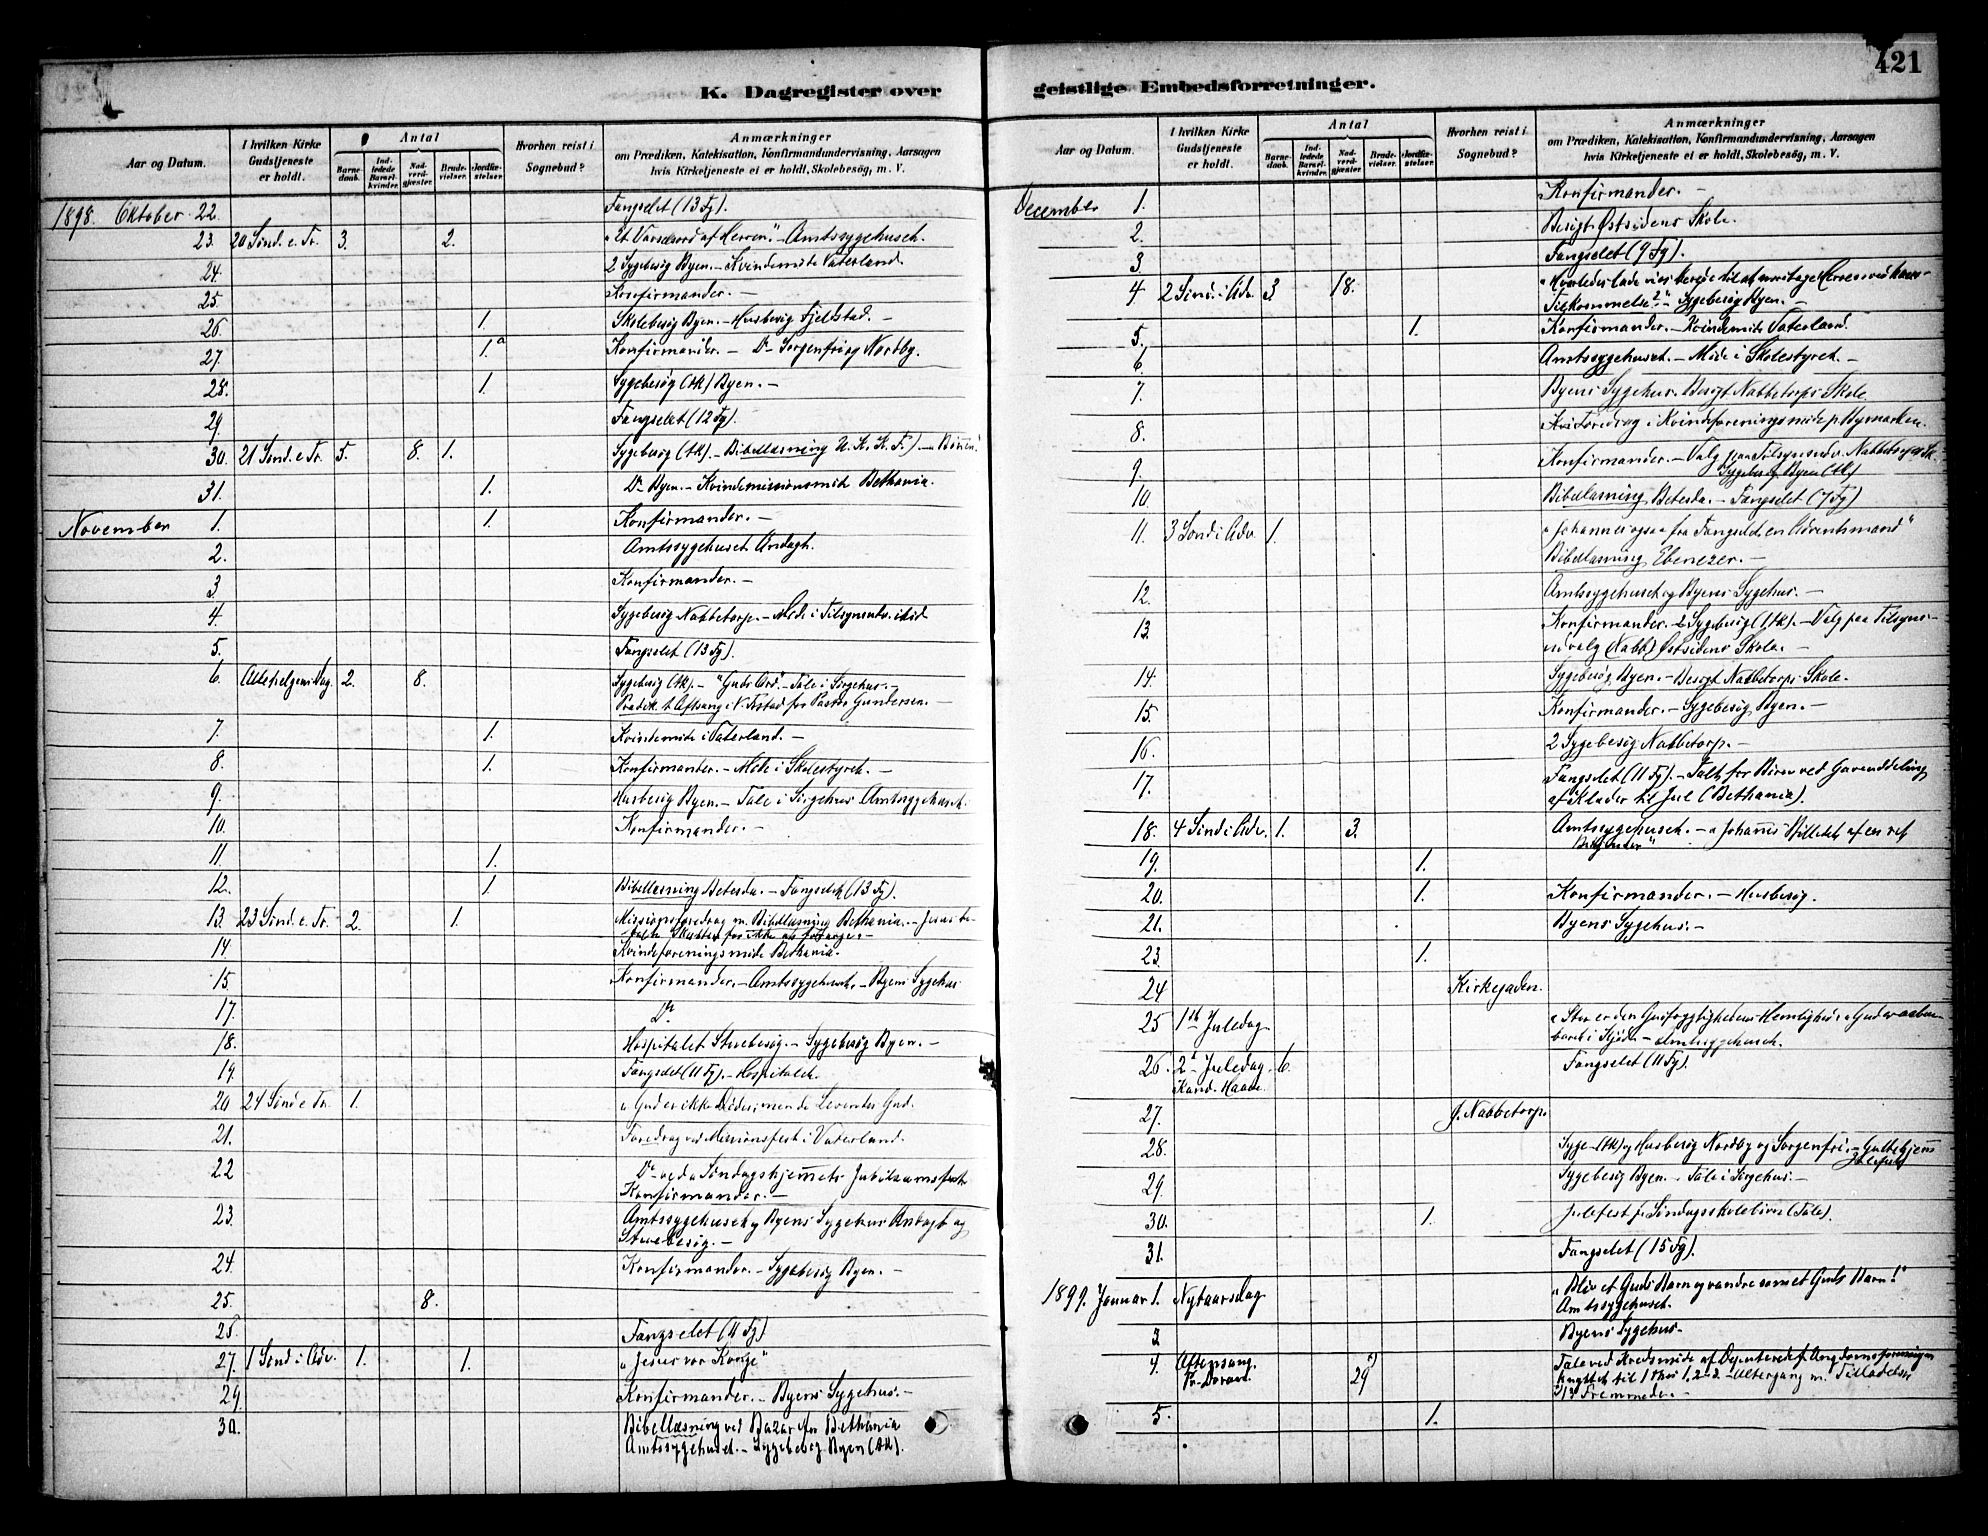 421
K. Dagregister over
Aar og Datum.
I hvilken Kirke Gudstjeneste er holdt.
Antal
Barne-daab.
Ind-ledede Barsel-kvinder.
Nad-verd-gjæster.
Brude-vielser.
Jordfæ-stelser.
Hvorhen reist i Sognebud?
Anmærkninger
om Prædiken, Katekisation, Konfirmandundervisning, Aarsagen
hvis Kirketjeneste ei er holdt, Skolebesøg, m. V.
1898. Oktober 22. Fangselet (13 Fg).
23. 20 Sønd. e. Tr. 3. 2. "Et Varselord af Herren". – Amtssygehuset.
24. 2 Sygebesøg Byen. – Kvindemøte Vaterland.
25. Konfirmander. –
26. 1. Skolebesøg Byen. – Husbesøg Fjeldstad. –
27. 1. Konfirmander. – Do Sorgenfri og Nordby.
28. 1. Sygebesøg (Ak) Byen. –
29. Fangselet (12 Fg).
30. 21 Sønd. e. Tr. 5. 8. 1. Sygebesøg (Ak). – Bibellæsning U. K. K. F.) – "Bønnen"
31. 1. Do Byen. – Kvindemissionsmøte Bethania.
November 1. 1. Konfirmander. –
2. Amtssygehuset Andagt.
3 Konfirmander. –
4. Sygebesøg Nabbetorp. – Møde i Tilsynsudv.
5. Fangselet (13 Fg).
6. Allehelgensdag. 2. 8. Sygebesøg (Ak). – "Guds Ord". – Tale i Sørgehus. –
Prædik. t. Aftsang i V. Fr.stad for Pastor Gundersen. –
7. 1. Kvindemøte i Vaterland. –
8. 1. Konfirmander. – Møde i Skolestyret. –
9. Husbesøg Byen. – Tale i Sørgehus Amtssygehuset.
10. Konfirmander. –
11. 1.
12. 1. Bibellæsning Betesda. – Fangselet (13 Fg).
13. 23 Sønd. e. Tr. 2. 1. Missionsforedrag m. Bibellæsning Bethania. –
14 Kvindeforeningsmøde Bethania.
15. Konfirmander. – Amtssygehuset. – Byens Sygehus
17. Do
18. Hospitalet Stuebesøg. – Sygebesøg Byen. –
19. Fangselet (11 Fg). – Hospitalet.
20 24 Sønd e Tr. 1. "Gud er ikke Dødes, men de Levendes Gud.
21. Foredrag ved Missionsfest i Vaterland.
22 Do ved Søndagshjemmets Jubilæumsfest
Konfirmander. –
23. Amtssygehuset og Byens Sygehus Andagt og
Stuebesøg. –
24. Konfirmander. – Sygebesøg Byen. –
25. 8.
26. Fangselet (11 Fg)
27. 1 Sønd i Adv. 1. 1. "Jesus vor Konge"
29. Konfirmander. – Byens Sygehus. –
30. Bibellæsning ved Bazar f. Bethania
Amtssygehuset. – Sygebesøg Byen (Ak).
geistlige Embedsforretninger.
Aar og Datum.
I hvilken Kirke Gudstjeneste er holdt.
Antal
Barne-daab.
Ind-ledede Barsel-kvinder.
Nad-verd-gjæster.
Brude-vielser.
Jordfæ-stelser.
Hvorhen reist i Sognebud?
Anmærkninger
om Prædiken, Katekisation, Konfirmandundervisning, Aarsagen
hvis Kirketjeneste ei er holdt, Skolebesøg, m. V.
December 1. Konfirmander. –
2. Besigt Østsidens Skole.
3. Fangselet (9 Fg).
4 2 Sønd. i Adv. 3. 18. "Hvorledes lade vi os berede til at modtage Herren ved hans
Tilkommelse?" – Sygebesøg Byen. –
5. 1. Konfirmander. – Kvindemøte Vaterland.
6. Amtssygehuset. – Møde i Skolestyret. –
7. Byens Sygehus. Besigt Nabbetorps Skole
8. Foredrag i Kvindeforeningsmøde p. Bymarken.
9. Konfirmander. – Valg paa Tilsynsudv. Nabbetorps Sk.
Sygebesøg Byen (Ak)
10. Bibellæsning Betesda. – Fangselet (7 Fg)
11. 3 Sønd i Adv. 1. "Johannes ogsaa fra Fangselet en Adventsmand"
Bibellæsning Ebenezer. –
12. Amtssygehuset og Byens Sygehus. –
13. Konfirmander. – 2 Sygebesøg (1 Ak). – Valg paa Tilsyns-
udvalg (Nabb) Østsidens Skole. –
14. Sygebesøg Byen. – Besigt Nabbetorps Skole.
15. Konfirmander. – Sygebesøg Byen. –
16. 2 Sygebesøg Nabbetorp. –
17. Fangselet (11 Fg). – Talt for Børn ved Gaveuddeling
af Klæder til Jul (Bethania).
18. 4 Sønd i Adv. 1. 3. Amtssygehuset. –
19. 1.
20. 1. Konfirmander. – Husbesøg.
21. Byens Sygehus. –
23. 1.
24 Kirkegaden.
25 1ste Juledag. "Stor er den Gudfrygtigheds Hemlighed: Gud er aaben-
baret i Kjød". – Amtssygehuset.
26. 2d Juledag. 6. Fangselet (11 Fg).
Kand. Haave.
27. f. Nabbetorp.
28. Syge- (Ak) og Husbesøg Nordby og Sorgenfri. –
29. Sygebesøg Byen. – Tale i Sørgehus. –
30. 1. Julefest f. Søndagsskolebørn (Tale).
31. Fangselet (15 Fg).
1899. Januar 1. Nytaarsdag "Bliv et Guds Barn og vandre som et Guds Barn!"
Amtssygehuset.
2 Byens Sygehus.
4. Aftensang. 29 Tale ved Kredsmøde af
5. 1.